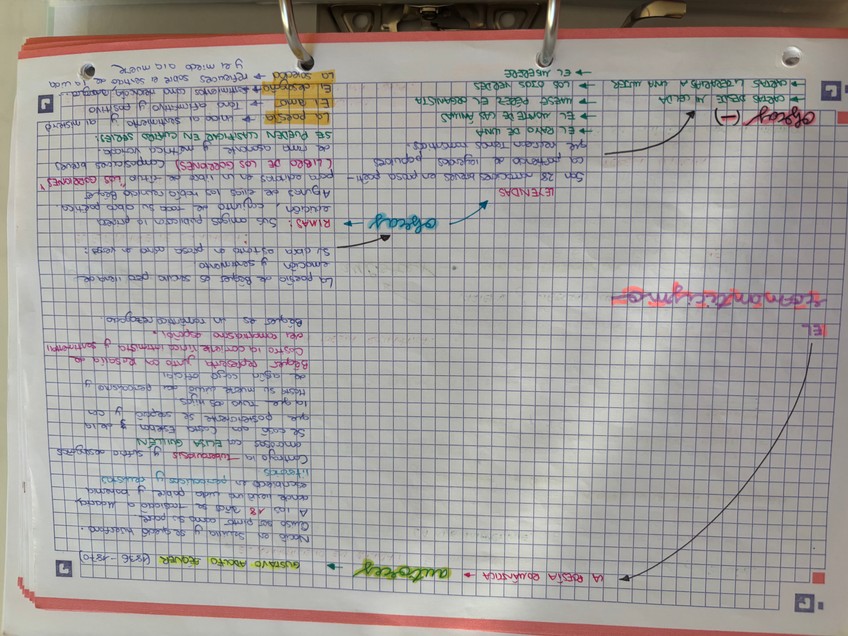 LA POESÍA ROMÁNTICA → autores → GUSTAVO ADOLFO BEQUER (1836-1870)
Nació en Sevilla y se quedó huérfano.
Quiso ser pintor como su padre.
A los 18 años se trasladó a Madrid,
donde llevó una vida pobre y bohemia
escribiendo en periódicos y revistas
literarias
Contrajo la tuberculosis y sufrió desengaños
amorosos con ELISA GUILLÉN
Se casó con Casta Esteban y de la
que posteriormente se separó y con
la que tuvo dos hijos
Hasta su muerte vivió del periodismo y
de algún cargo oficial
Béquer representa junto con Rosalía de
Castro la corriente lírica intimista y sentimental
del romanticismo español.
Béquer es un romántico rezagado.
EL
romanticismo
La poesía de Béquer es sencilla pero llena de
emoción y sentimiento
Su obra está tanto en prosa como en verso:
obras → RIMAS: Sus amigos publicaron la primera
edición, conjunto de toda su obra poética.
Algunas de ellas las había reunido Béquer
para editarlas en un libro de título "LOS GORRIONES"
(LIBRO DE LOS GORRIONES) Composiciones breves
de rima asonante y métrica variada.
SE PUEDEN CLASIFICAR EN CUATRO SERIES:
La poesía → canto al sentimiento y al misterio
El amor → tono afirmativo y positivo
El desengaño → sentimientos como rencor,
La soledad → reflexiones sobre el sentido de la vida
y el miedo a la muerte
LEYENDAS
Son 28 narraciones breves en prosa poéti-
ca pertenecen a leyendas populares
que recrean temas románticos.
→ EL RAYO DE LUNA
→ EL MONTE DE LAS ÁNIMAS
→ MAESE PÉREZ EL ORGANISTA
→ LOS OJOS VERDES
→ EL MISERERE
obras (-)
→ CARTAS DESDE MI CELDA
→ CARTAS LITERARIAS A UNA MUJER